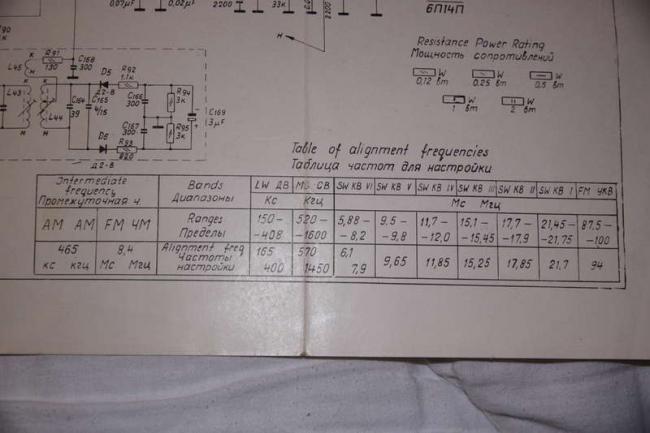 0,07µF
0,02µF
2200
33к
2200
6П14П
н
Resistance Power Rating
Мощность сопротивлений
W 0,12 вт
W 0,25 вт
W 0,5 вт
W 1 вт
W 2 вт
R91
130
C168
300
L45
к
н
Д5
Д2-В
R92
1.1к
L43
L44
C164
39
C165
4/15
C166
300
R94
3к
C167
300
R95
3к
C169
3µF
Д6
R93
820
Д2-В
Table of alignment frequencies
Таблица частот для настройки
Intermediate frequency Промежуточная ч. Bands Диапазоны LW ДВ MB СВ SW КВ VI SW КВ V SW КВ IV SW КВ III SW КВ II SW КВ I FM УКВ
Кс Кгц Мс Мгц
AM АМ FM ЧМ Ranges Пределы 150–408 520–1600 5,88–8,2 9.5–9,8 11,7–12,0 15,1–15,45 17,7–17,9 21,45–21,75 87,5–100
465 кс кгц 8,4 Мс Мгц Alignment freq Частоты настройки 165 400 570 1450 6,1 7,9 9,65 11,85 15,25 17,85 21,7 94